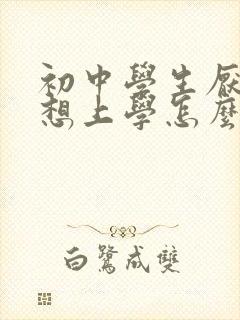 初中學生厭
想上學怎麼
白鷺成雙